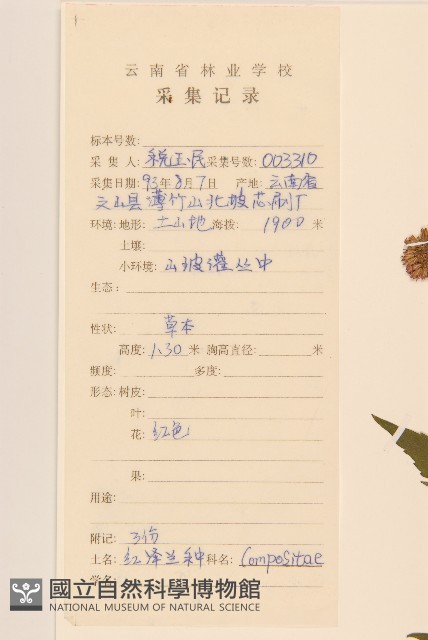 云南省林业学校
采集记录
标本号数:
采集人: 税玉民 采集号数: 003310
采集日期: 93年8月7日 产地: 云南省
文山县薄竹山北坡芯制厂
环境: 地形: 土山地 海拨: 1900 米
土壤:
小环境: 山坡灌丛中
生态:
性状: 草本
高度: 1.30 米 胸高直径: 米
频度: 多度:
形态: 树皮:
叶:
花: 红色
果:
用途:
附记: 3份
土名: 红泽兰种 科名: Compositae
学名:
國立自然科學博物館
NATIONAL MUSEUM OF NATURAL SCIENCE